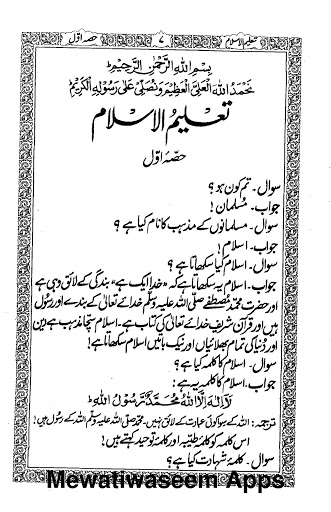 تعلیم الاسلام ۷ حصہ اوّل
بِسْمِ اللّٰہِ الرَّحْمٰنِ الرَّحِیْمِ
نَحْمَدُ اللّٰہَ الْعَلِیَّ الْعَظِیْمَ وَنُصَلِّیْ عَلٰی رَسُوْلِہِ الْکَرِیْمِ
تعلیمُ الاسلام
حصّہ اوّل
سوال۔ تم کون ہو؟
جواب۔ مُسلمان!
سوال۔ مسلمانوں کے مذہب کا نام کیا ہے؟
جواب۔ اسلام!
سوال۔ اسلام کیا سکھاتا ہے؟
جواب۔ اسلام یہ سکھاتا ہے کہ "خدا ایک ہے" بندگی کے لائق وہی ہے
اور حضرت محمد مصطفٰے صلی اللہ علیہ وسلم خدائے تعالیٰ کے بندے اور رسول
ہیں اور قرآن شریف خدائے تعالیٰ کی کتاب ہے۔ اسلام سچّا مذہب ہے دین
اور دُنیا کی تمام بھلائیاں اور نیک باتیں اسلام سکھاتا ہے!
سوال۔ اسلام کا کلمہ کیا ہے؟
جواب۔ اسلام کا کلمہ یہ ہے:
لَآ اِلٰہَ اِلَّا اللّٰہُ مُحَمَّدٌ رَّسُوْلُ اللّٰہِ
ترجمہ: اللہ کے سوا کوئی عبادت کے لائق نہیں۔ محمد صلی اللہ علیہ وسلم اللہ کے رسول ہیں!
اس کلمہ کو کلمۂ طیّبہ اور کلمۂ توحید کہتے ہیں!
سوال۔ کلمۂ شہادت کیا ہے؟
Mewatiwaseem Apps